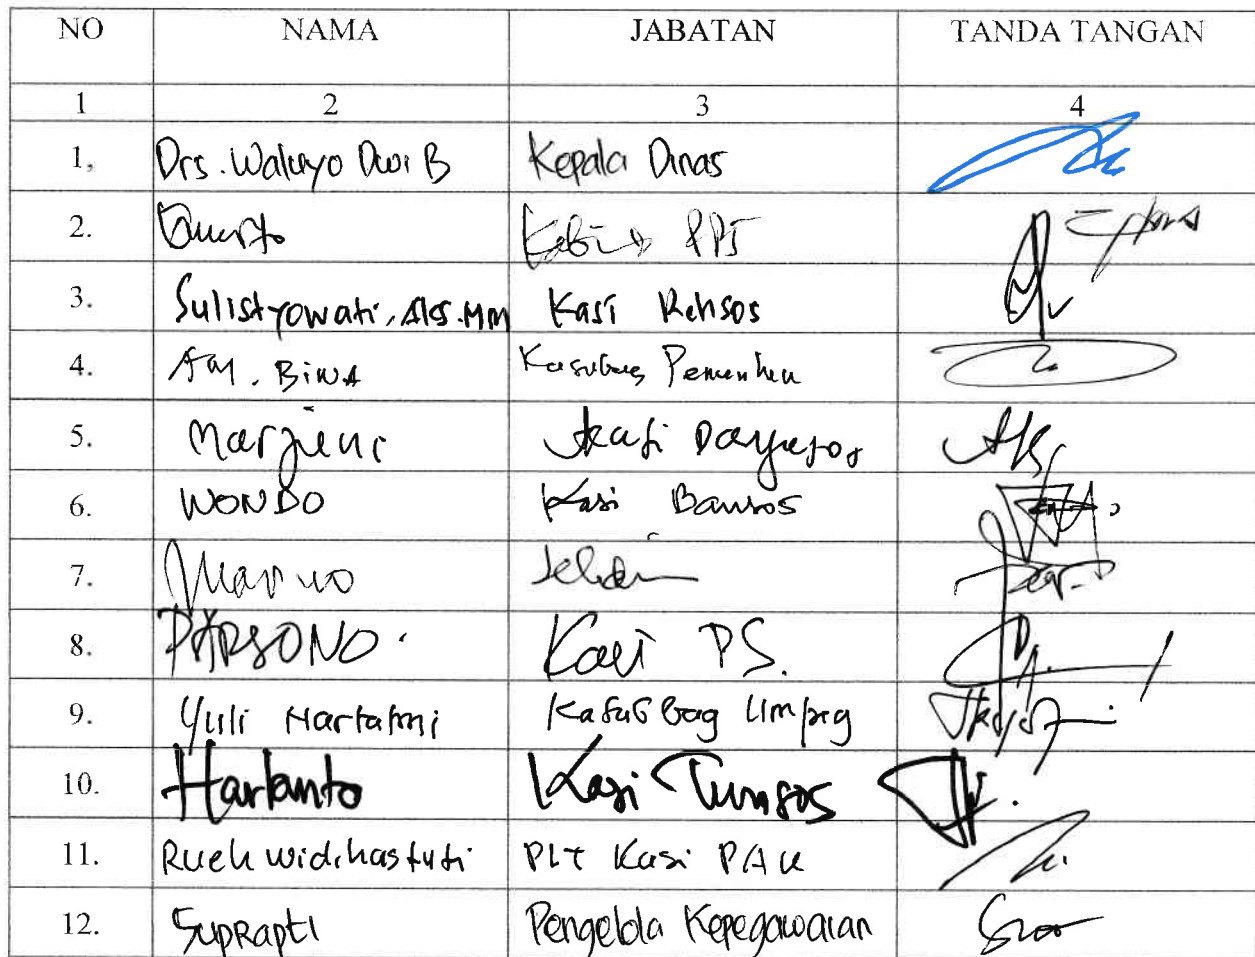 NO NAMA JABATAN TANDA TANGAN
1 2 3 4
1, Drs. Waluyo Dwi B Kepala Dinas
2. PPJ
3. Sulistyowati, AKS.MM Kasi Rehsos
4. BINA Kasubag
5. Marjieni Kasi Dayasos
6. WONDO Kasi Bansos
7.
8. PARSONO. Kasi PS.
9. Yuli Hartatmi Kasubbag Umpeg
10. Hartanto Kasi Tunsos
11. Rueh widihastuti PLT Kasi PAK
12. Suprapti Pengelola Kepegawaian